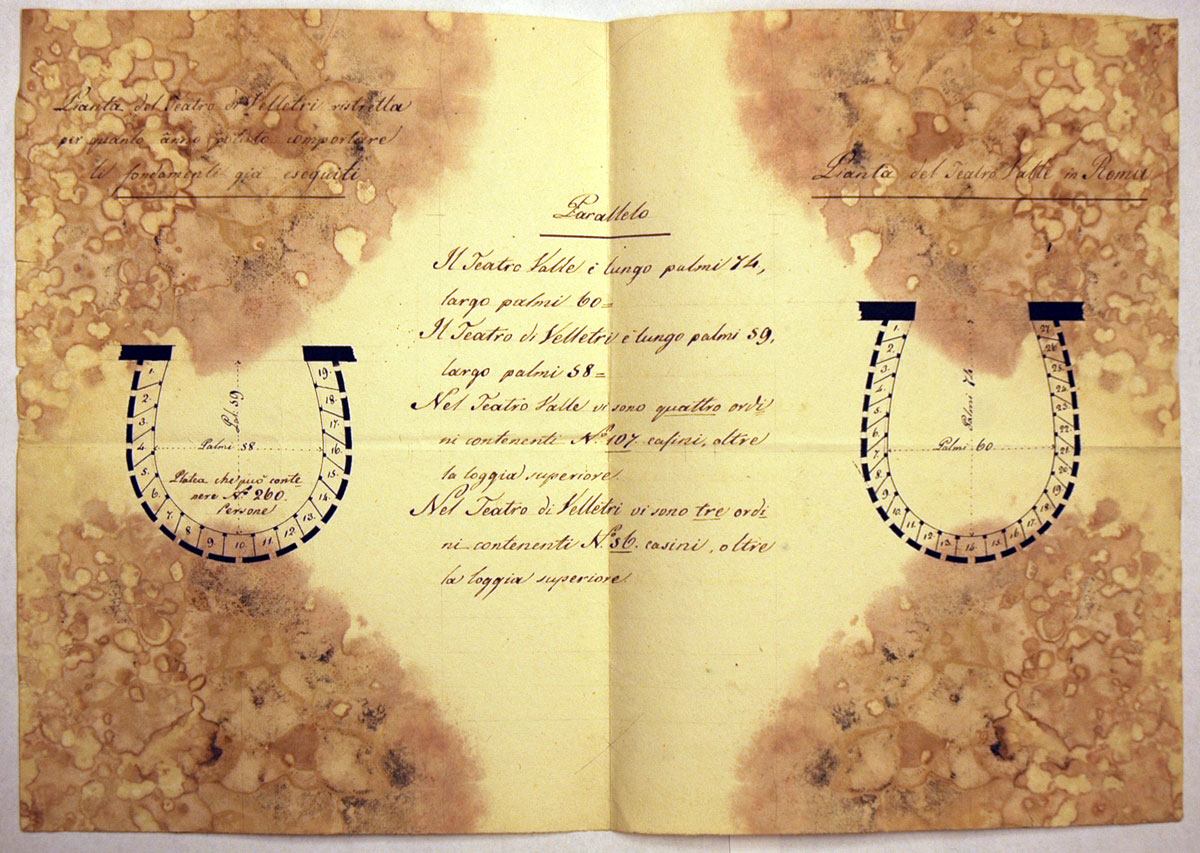 Pianta del Teatro di Velletri ristretta
per quanto ànno potuto comportare
li fondamenti già eseguiti
Pianta del Teatro Valle in Roma
Parallelo
Il Teatro Valle è lungo palmi 74,
largo palmi 60=
Il Teatro di Velletri è lungo palmi 59,
largo palmi 58=
Nel Teatro Valle vi sono quattro ordi
ni contenenti N.° 107. casini, oltre
la loggia superiore.
Nel Teatro di Velletri vi sono tre ordi
ni contenenti N.° 56. casini, oltre
la loggia superiore.
1.
2.
3.
4.
5.
6.
7.
8.
9.
10.
11.
12.
13.
14.
15.
16.
17.
18.
19.
Pal: 59
Palmi 58
Platea che può conte
nere N.° 260.
Persone
1.
2.
3.
4.
5.
6.
7.
8.
9.
10.
11.
12.
13.
14.
15.
16.
17.
18.
19.
20.
21.
22.
23.
24.
25.
26.
27.
Palmi 74
Palmi 60